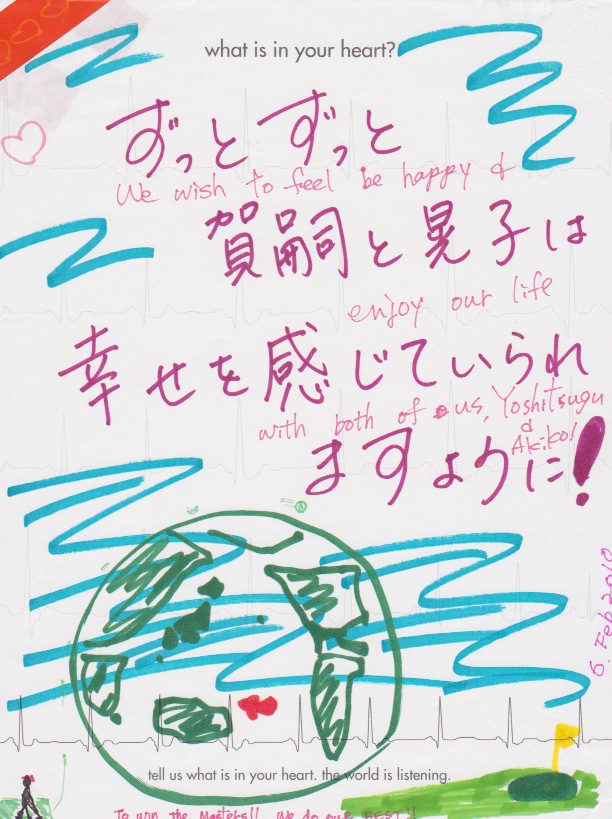 what is in your heart?
ずっと ずっと
We wish to feel be happy &
賀嗣と晃子は
enjoy our life
幸せを感じていられ
with both of us, Yoshitsugu
& Akiko!
ますように!
6 Feb 2010
tell us what is in your heart. the world is listening.
To win the Masters!! We do our BEST!!